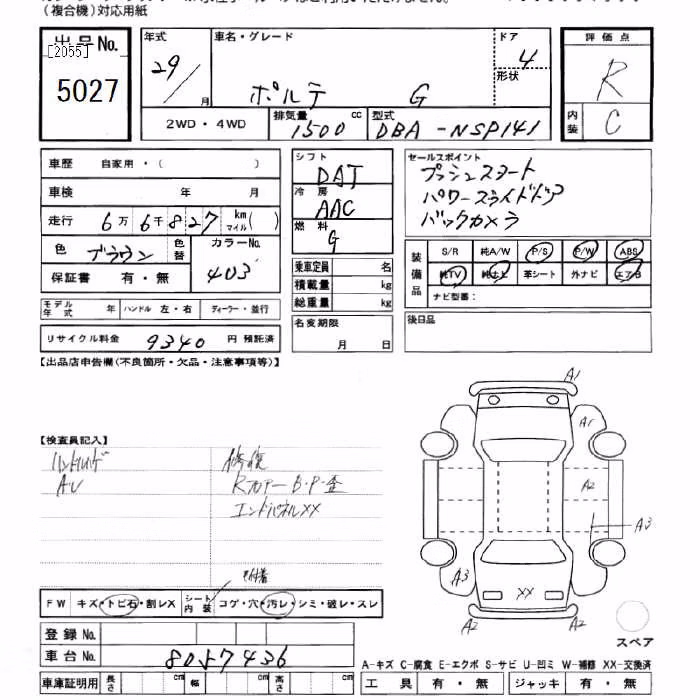 (複合機)対応用紙
出品No.
[2055]
5027
年式
29/月
車名・グレード
ポルテ G
ドア
4
形状
2WD・4WD
排気量
1500 cc
型式
DBA-NSP141
評価点
R
内装
C
車歴 自家用・( )
車検 年 月
走行 6万6千827 km マイル( )
色 ブラウン 色替
カラーNo.
4U3
保証書 有・無
モデル年式 年 ハンドル 左・右 ディーラー・並行
リサイクル料金 9340 円 預託済
シフト
DAT
冷房
AAC
燃料
G
乗車定員 名
積載量 kg
総重量 kg
名変期限
月 日
セールスポイント
プッシュスタート
パワースライドドア
バックカメラ
装備品
S/R 純A/W P/S P/W ABS
純TV 純ナビ 革シート 外ナビ エアB
ナビ型番:
後日品
【出品店申告欄(不良箇所・欠品・注意事項等)】
【検査員記入】
修復
AU
RフロアーB・P・歪
エンドパネルXX
A1
A1
A2
A3
A3
XX
A2
A2
スペア
FW キズ・トビ石・割レX
シート内装 コゲ・穴・汚レ・シミ・破レ・スレ
登録No.
車台No. 8057436
車庫証明用 長さ cm 幅 cm 高さ cm
A-キズ C-腐食 E-エクボ S-サビ U-凹ミ W-補修 XX-交換済
工具 有・無 ジャッキ 有・無